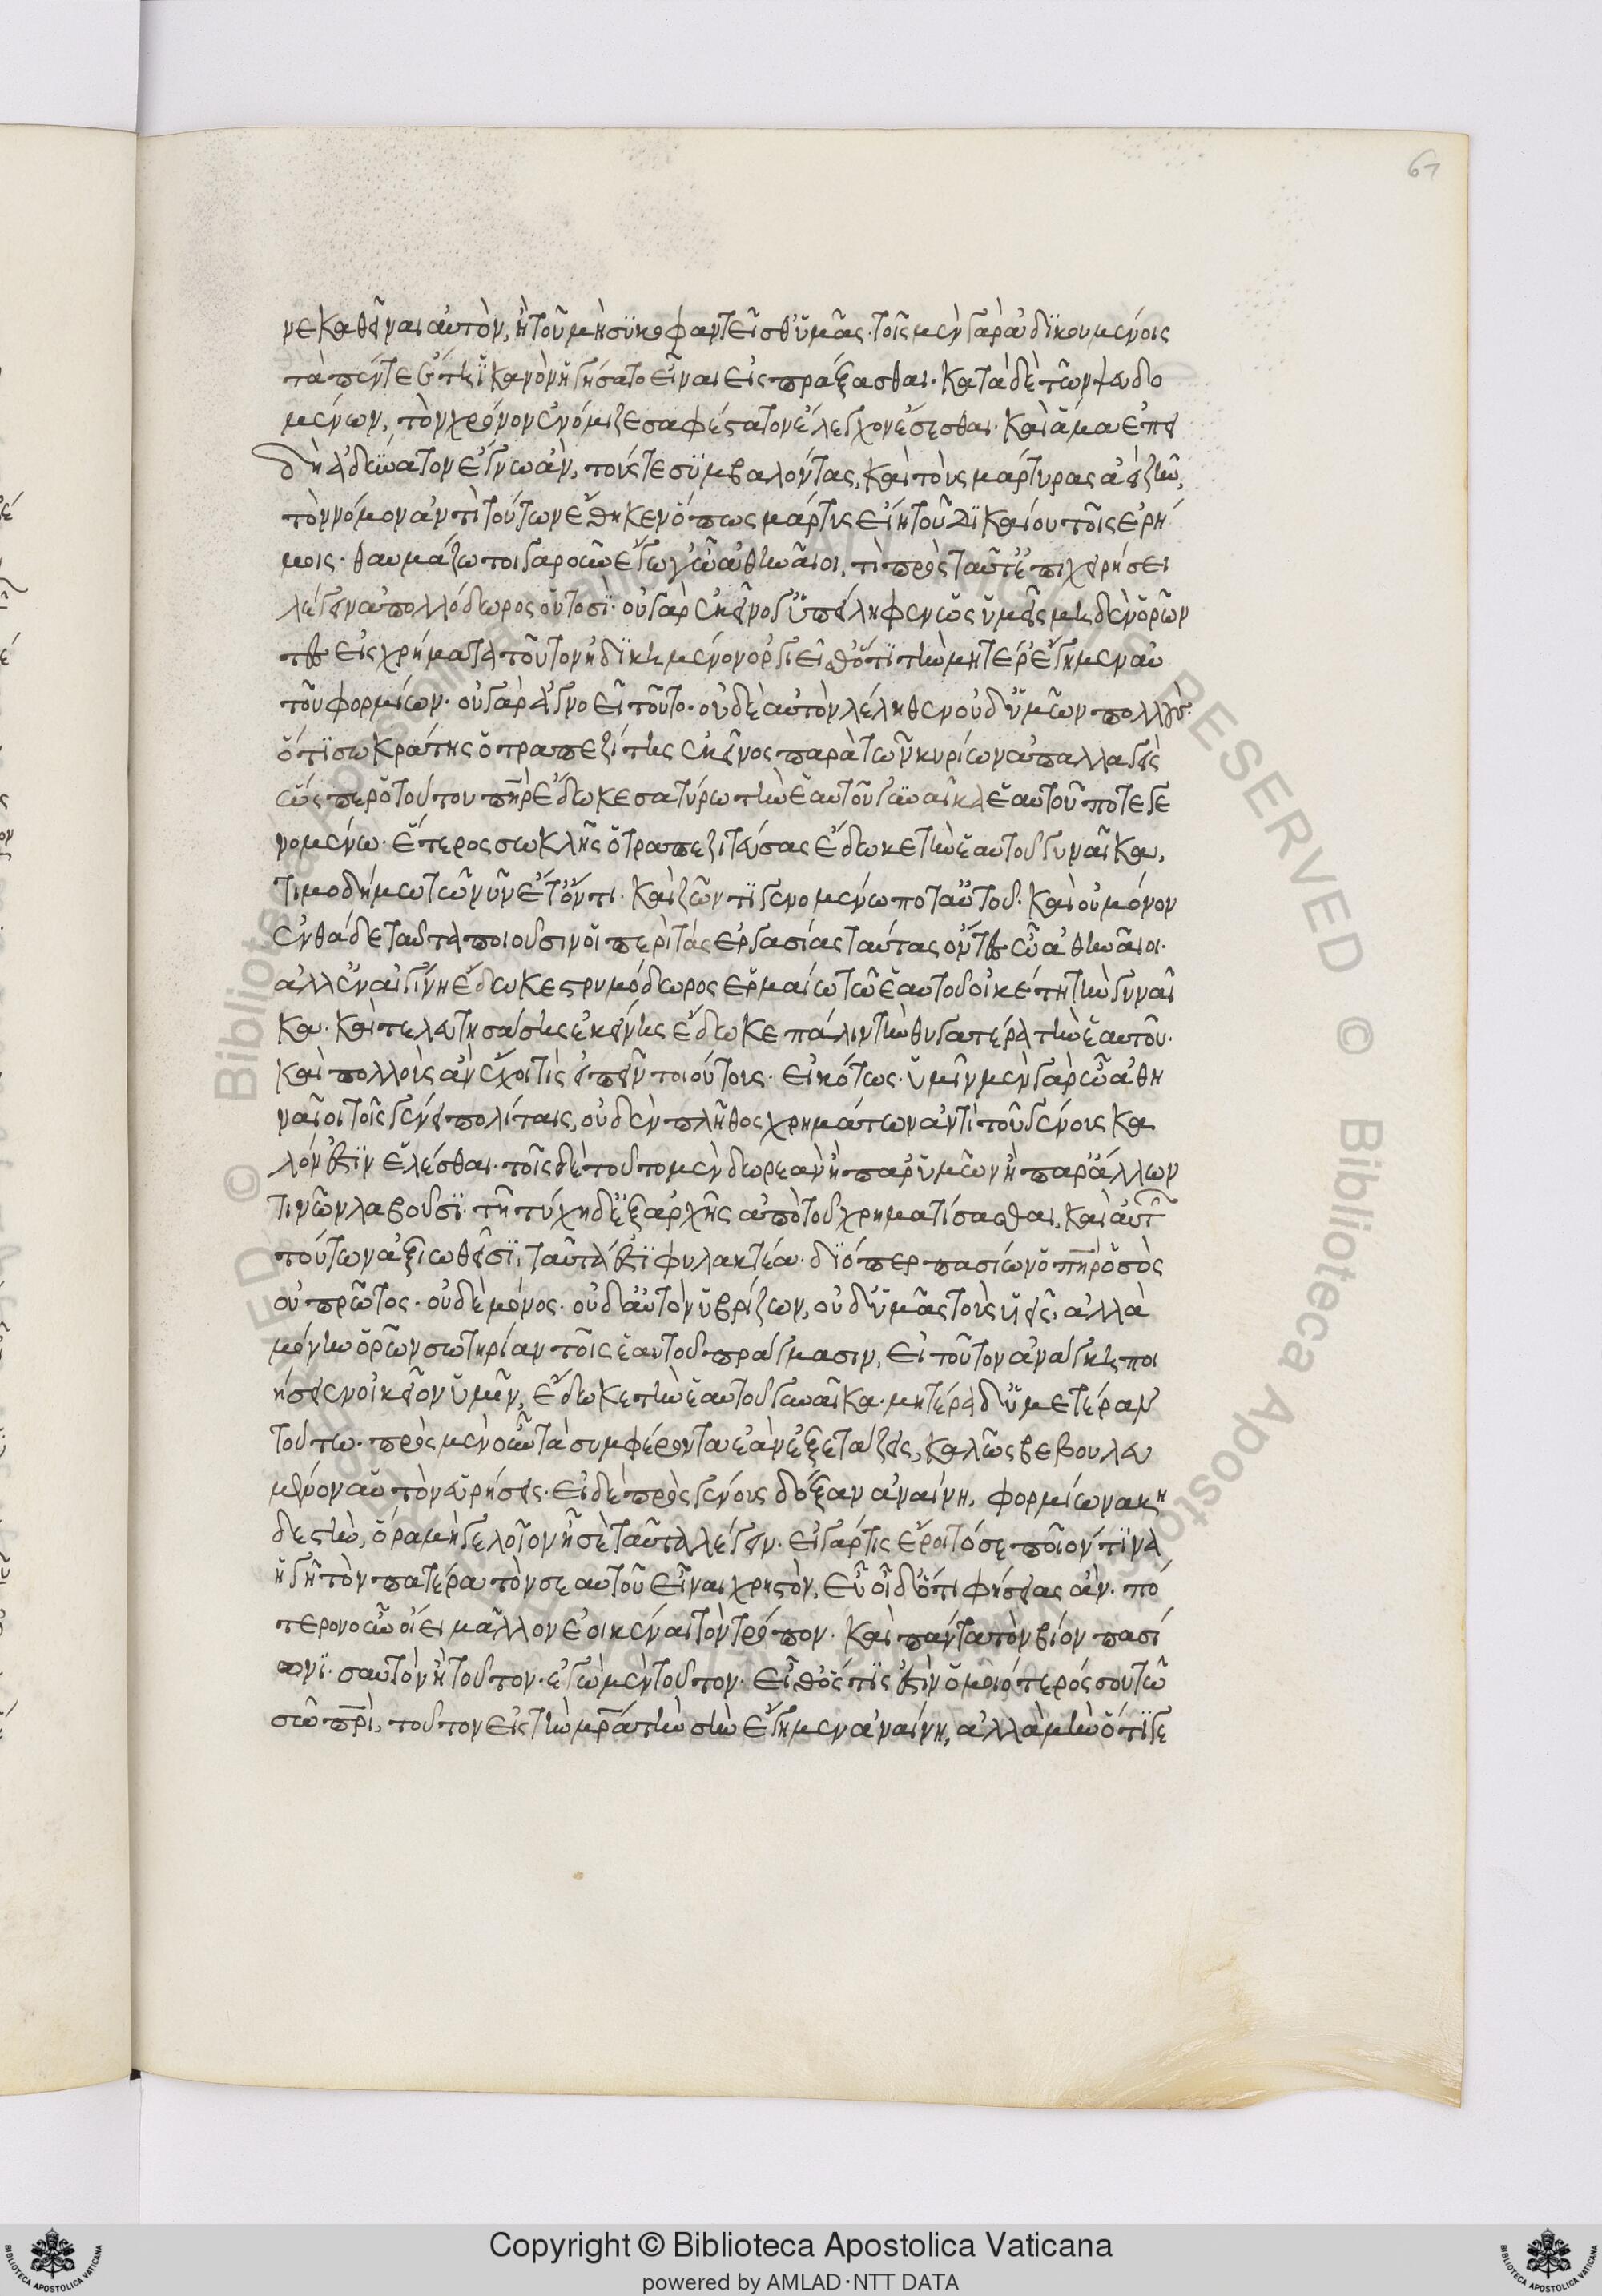 61
νεκα θεῖναι αὐτὸν, ἢ τοῦ μὴ συκοφαντεῖσθ' ὑμᾶς· τοῖς μὲν γὰρ ἀδικουμένοις
τὰ πέντε ἔτη ἱκανὸν ἡγήσατο εἶναι εἰσπράξασθαι· κατὰ δὲ τῶν ψευδο
μένων, τὸν χρόνον ἐνόμιζε σαφέστατον ἔλεγχον ἔσεσθαι· καὶ ἅμα ἐπει
δὴ ἀδύνατον ἔγνω ἂν, τούς τε συμβαλόντας, καὶ τοὺς μάρτυρας ἀεὶ ζῆν,
τὸν νόμον ἀντὶ τούτων ἔθηκεν ὅπως μάρτυς εἴη τοῦ δικαίου τοῖς ἐρή
μοις· θαυμάζω τοιγαροῦν ἔγωγ' ὦ ἀθηναῖοι, τί πρὸς ταῦτ' ἐπιχειρήσει
λέγειν ἀπολλόδωρος οὑτοσί· οὐ γὰρ ἐκεῖνό γ' ὑπείληφεν ὡς ὑμεῖς μηδὲν ὁρῶν
τες εἰς χρήματα τοῦτον ἠδικημένον ὀργιεῖσθ' ὅτι τὴν μητέρ' ἔγημεν αὐ
τοῦ φορμίων· οὐ γὰρ ἀγνοεῖ τοῦτο· οὐδὲ αὐτὸν λέληθεν οὐδ' ὑμῶν πολλούς·
ὅτι σωκράτης ὁ τραπεζίτης ἐκεῖνος παρὰ τῶν κυρίων ἀπαλλαγεὶς
ὥσπερ ὁ τούτου πηρ ἔδωκε σατύρω τὴν ἑαυτοῦ γυναῖκα ἑαυτοῦ ποτε γε
νομένω· ἕτερος σωκλῆς ὁ τραπεζιτεύσας ἔδωκε τὴν ἑαυτοῦ γυναῖκα,
τιμοδήμω τῶ νῦν ἔτ' ὄντι· καὶ ζῶντι γενομένω ποτ' αὑτοῦ· καὶ οὐ μόνον
ἐνθάδε ταῦτα ποιοῦσιν οἱ περὶ τὰς ἐργασίας ταύτας ὄντες ὦ ἀθηναῖοι·
ἀλλ' ἐν αἰγίνη ἔδωκε στρυμόδωρος ἑρμαίω τῶ ἑαυτοῦ οἰκέτη τὴν γυναῖ
κα· καὶ τελευτησάσης ἐκείνης ἔδωκε πάλιν τὴν θυγατέρα τὴν ἑαυτοῦ·
καὶ πολλοὺς ἂν ἔχοι τὶς εἰπεῖν τοιούτους· εἰκότως· ὑμῖν μὲν γὰρ ὦ ἀθη
ναῖοι τοῖς γένει πολίταις, οὐδὲν πλῆθος χρημάτων ἀντὶ τοῦ γένους κα
λόν ἐστιν ἑλέσθαι· τοῖς δὲ τοῦτο μὲν δωρεὰν ἢ παρ' ὑμῶν ἢ παρ' ἄλλων
τινῶν λαβοῦσι· τῆ τύχη δ' ἐξ ἀρχῆς ἀπὸ τοῦ χρηματίσασθαι, καὶ αὐτῶν
τούτων ἀξιωθεῖσι, ταῦτά ἐστι φυλακτέα· διόπερ πασίων ὁ πηρ ὁ σὸς
οὐ πρῶτος· οὐδὲ μόνος· οὐδ' αὑτὸν ὑβρίζων, οὐδ' ὑμᾶς τοὺς υἱεῖς· ἀλλὰ
μόνην ὁρῶν σωτηρίαν τοῖς ἑαυτοῦ πράγμασιν, εἰ τοῦτον ἀνάγκη ποι
ήσειεν οἰκεῖον ὑμῖν, ἔδωκε τὴν ἑαυτοῦ γυναῖκα· μητέρα δ' ὑμετέραν
τούτω· πρὸς μὲν οὖν τὰ συμφέροντα ἐὰν ἐξετάζης, καλῶς βεβουλευ
μένον αὐτὸν εὑρήσεις· εἰ δὲ πρὸς γένους δόξαν ἀναίνη, φορμίωνα κη
δεστὴν, ὅρα μὴ γελοῖον ἦ σὲ ταῦτα λέγειν· εἰ γάρ τις ἔροιτό σε ποῖόν τινα
ἡγῆ τὸν πατέρα τὸν σεαυτοῦ εἶναι χρηστὸν, εὖ οἶδ' ὅτι φήσειας ἄν· πό
τερον οὖν οἴει μᾶλλον ἐοικέναι τὸν τρόπον· καὶ πάντα τὸν βίον πασί
ωνι· σαυτὸν ἢ τοῦτον· ἐγὼ μὲν τοῦτον· εἶθ' ὅς τίς ἐστιν ὁμοιότερός σου τῶ
σῶ πρὶ, τοῦτον εἰς τὴν μρα τὴν σὴν ἔγημεν ἀναίνη, ἀλλὰ μὴν ὅτι γε
Copyright © Biblioteca Apostolica Vaticana
powered by AMLAD·NTT DATA